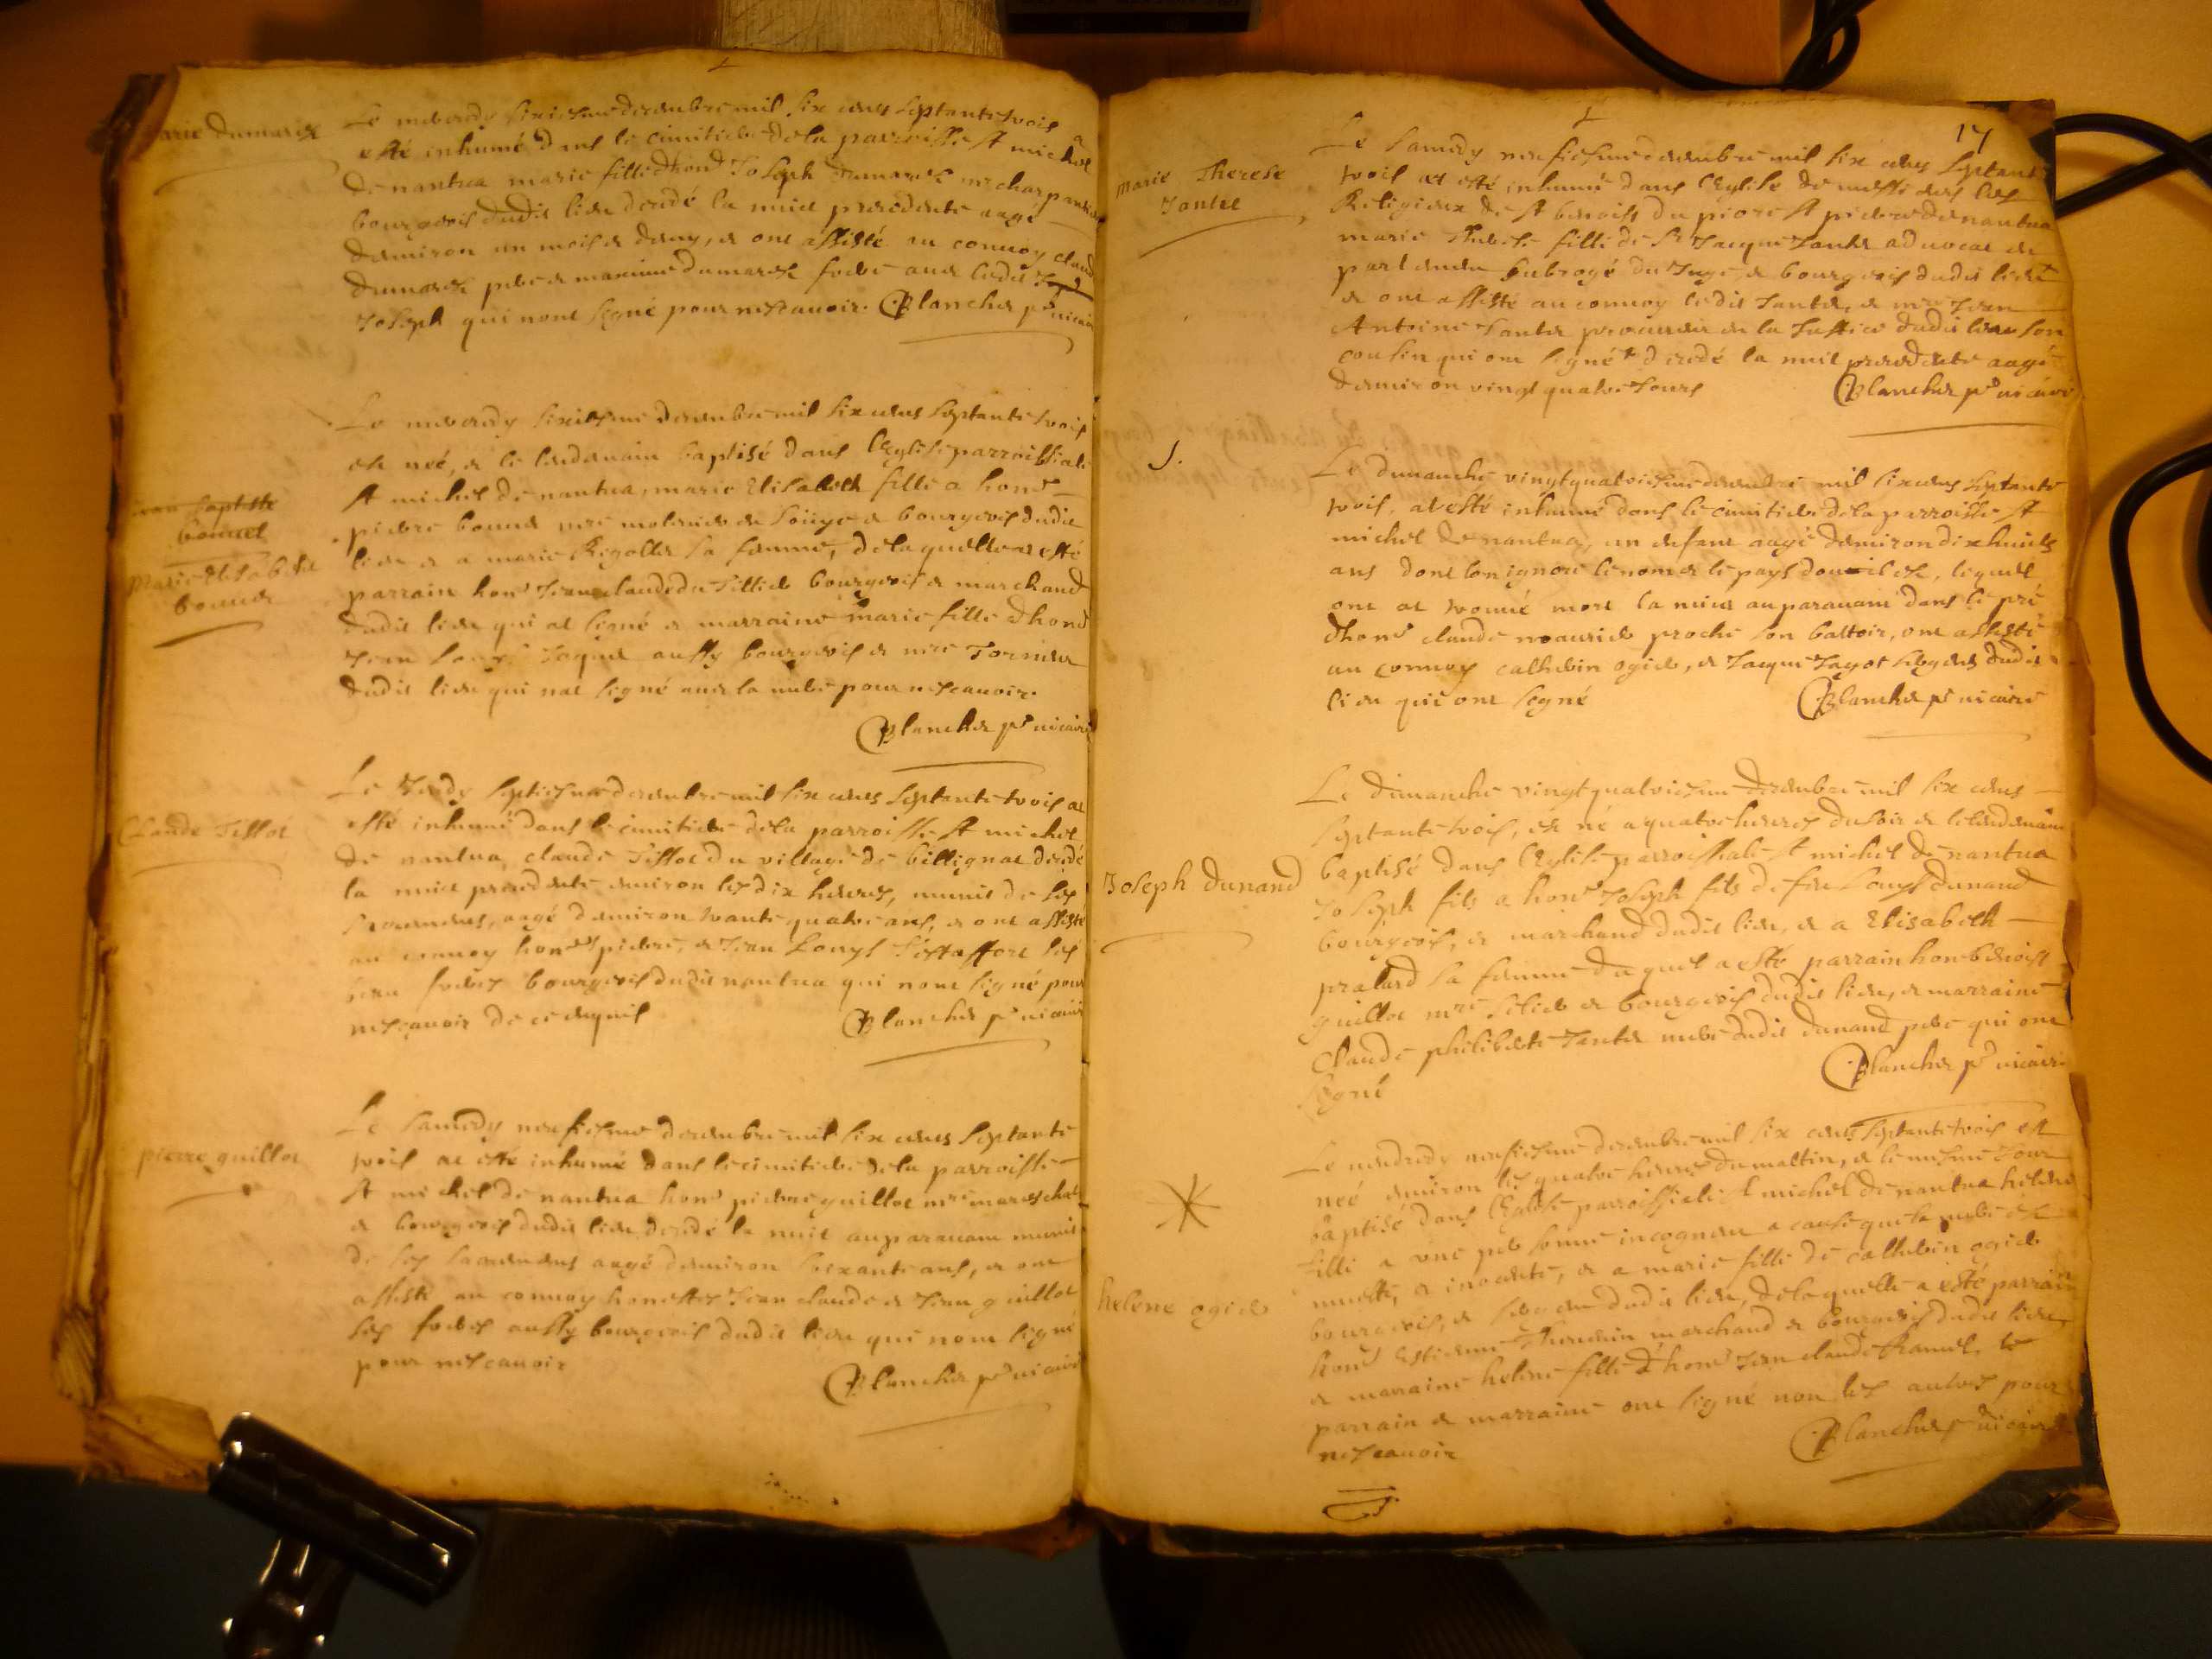 marie dumarest
Le mecredy sixiesme decembre mil six cens septante trois a
esté inhumé dans le cimitiere de la parroisse st michel
de nantua marie fille dhono Joseph dumarest mre charpantier
bourgeois dudit lieu decedé la nuit precedente aagé
denviron un mois et demy, et ont assisté au convoy claude
dumarest pere et frere avec ledit
Joseph qui nont signé pour ne scavoir. Blanchet ptre vicaire
Le mecredy sixiesme decembre mil six cens septante trois
est neé, et le lendemain baptisé dans l'Eglise parroissiale
st michel de nantua, marie Elisabeth fille a hono
Jean baptiste
bonnet
marie Elisabeth
bonnet
pierre bonnet mre de soiiye et bourgeois dudit
lieu et a marie Rigollet sa femme, de laquelle at esté
parrain hono Jean claude du Tillet bourgeois et marchand
dudit lieu qui at signé et marraine marie fille dhono
Jean Louys aussy bourgeois et mre Tornieu
dudit lieu qui nat signé avec la mere pour ne scavoir.
Blanchet ptre vicaire
Claude Tissot
Le Jeudy septiesme decembre mil six cens septante trois at
esté inhumé dans le cimitiere de la parroisse st michel
de nantua, claude Tissot du village de billignat decedé
la nuit precedente environ les dix heures, munit de ses
sacremens, aagé denviron trante quatre ans, et ont assisté
au convoy honostes pierre, et Jean Louys ses
beau freres bourgeois dudit nantua qui nont signé pour
ne scavoir de ce enquis Blanchet ptre vicaire
pierre guillot
Le samedy neufiesme decembre mil six cens septante
trois at esté inhumé dans le cimitiere de la parroisse
st michel de nantua hono pierre guillot mre mareschal
et bourgeois dudit lieu, decedé la nuit auparavant munit
de ses sacremens aagé denviron soixante ans, et ont
assisté au convoy honestes Jean claude et Jean guillot
ses freres aussy bourgeois dudit lieu qui nont signé
pour ne scavoir
Blanchet ptre vicaire
17
marie Therese
Jantet
Le samedy neufiesme decembre mil six cens septante
trois at esté inhumé dans l'Eglise de messieurs les
Religieux de st benoist du prioré st pierre de nantua
marie Therese fille de Sr Jacque Jantet advocat en
parlement subrogé du Juge, et bourgeois dudit lieu
et ont assisté au convoy ledit Jantet, et mre Jean
Antoine Jantet procureur en la Justice dudit lieu son
cousin qui ont signé decedé la nuit precedente aagé
denviron vingt quatre Jours Blanchet ptre vicaire
Le dimanche vingt quatriesme decembre mil six cens septante
trois, at esté inhumé dans le cimitiere de la parroisse st
michel de nantua, un enfant aagé denviron dix huict
ans dont lon ignore le nom et le pays dou il est, lequel
ont at trouvé mort la nuit auparavant dans le pré
dhono claude proche son battoir, ont assisté
au convoy cathelin ogier, et Jacque Jagot sergens dudit
lieu qui ont signé Blanchet ptre vicaire
Joseph dunand
Le dimanche vingt quatriesme decembre mil six cens
septante trois, est né a quatre heures du soir et le lendemain
baptisé dans l'Eglise parroissiale st michel de nantua
Joseph fils a hono Joseph fils de feu Louys dunand
bourgeois, et marchand dudit lieu, et a Elisabeth
pralard sa femme duquel a esté parrain hono benoist
guillot mre selier et bourgeois dudit lieu, et marraine
Claude philiberte Jantet mere dudit dunand pere qui ont
signé Blanchet ptre vicaire
helene ogier
Le vendredy neufiesme decembre mil six cens septante trois est
neé environ les quatre heures du mattin, et le mesme Jour
baptisé dans l'Eglise parroissiale st michel de nantua helene
fille a une personne incogneue a cause que la mere est
muette, et inocente, et a marie fille de cathelin ogier
bourgeois, et sergent dudit lieu, de laquelle a esté parrain
hono Estienne marchand et bourgeois dudit lieu
et marraine helene fille d'hono Jean claude le
parrain et marraine ont signé non les autres pour
ne scavoir Blanchet ptre vicaire